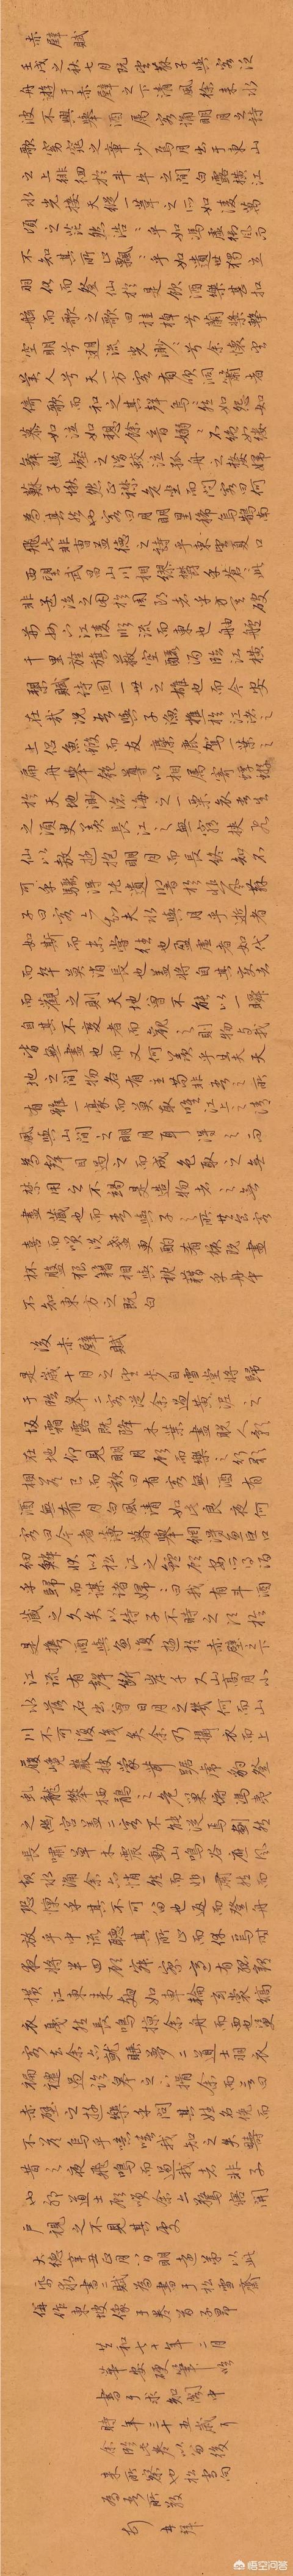 赤壁賦
壬戌之秋七月既望蘇子與客泛
舟遊于赤壁之下清風徐來水
波不興舉酒属客誦明月之詩
歌窈窕之章少焉月出于東山
之上徘徊於斗牛之間白露橫江
水光接天縱一葦之所如淩萬
頃之茫然浩〻乎如馮虛御風而
不知其所止飄〻乎如遺世獨立
羽化而登仙於是飲酒樂甚扣
舷而歌之歌曰桂棹兮蘭槳擊
空明兮遡流光渺〻兮余懷望
美人兮天一方客有吹洞簫者
倚歌而和之其聲嗚〻然如怨如
慕如泣如訴餘音嫋〻不絶如縷
舞幽壑之潛蛟泣孤舟之嫠婦
蘇子愀然正襟危坐而問客曰何
為其然也客曰月明星稀烏鵲南
飛此非曹孟德之詩乎東望夏口
西望武昌山川相繆鬱乎蒼〻此
非孟德之困於周郎者乎方其破
荊州下江陵順流而東也舳艫
千里旌旗蔽空釃酒臨江橫
槊賦詩固一世之雄也而今安
在哉況吾與子漁樵於江渚之
上侶魚蝦而友麋鹿駕一葉之
扁舟舉匏尊以相属寄蜉蝣
於天地渺滄海之一粟哀吾生
之須臾羨長江之無窮挾飛
仙以遨遊抱明月而長終知不
可乎驟得託遺響於悲風蘇
子曰客亦知夫水與月乎逝者
如斯而未嘗往也盈虛者如代
而卒莫消長也蓋將自其變者
而觀之則天地曾不能以一瞬
自其不變者而觀之則物與我
皆無盡也而又何羨乎且夫天
地之間物各有主苟非吾之所
有雖一毫而莫取惟江上之清
風與山間之明月耳得之而
為聲目遇之而成色取之無
禁用之不竭是造物者之無
盡藏也而吾與子之所共食客
喜而笑洗盞更酌肴核既盡
杯盤狼藉相與枕藉乎舟中
不知東方之既白
後赤壁賦
是歲十月之望步自雪堂將歸
于臨皋二客從余過黃泥之
坂霜露既降木葉盡脫人影
在地仰見明月顧而樂之行歌
相答已而歎曰有客無酒有
酒無肴月白風清如此良夜何
客曰今者薄暮舉網得魚巨口
細鱗狀似松江之鱸顧安所得酒
乎歸而謀諸婦〻曰我有斗酒
藏之久矣以待子不時之須於
是攜酒與魚復遊於赤壁之下
江流有聲斷岸千尺山高月小
水落石出曾日月之幾何而江山
川不可復識矣余乃攝衣而上
履巉巖披蒙茸踞虎豹登
虬龍攀栖鶻之危巢俯馮夷
之幽宮蓋二客不能從焉劃然
長嘯草木震動山鳴谷應風
起水涌余亦悄然而悲肅然而
恐凜乎其不可留也返而登舟
放乎中流聽其所止而休焉時
夜將半四顧寂寥適有孤鶴
橫江東來翅如車輪玄裳縞
衣戛然長鳴掠余舟而西也須
客去余亦就睡夢二道士羽衣
蹁躚過臨皋之下揖余而言曰
赤壁之遊樂乎問其姓名俛而
不答嗚乎噫嘻我知之矣疇
昔之夜飛鳴而過我者非子
也耶道士顧笑余亦驚寤開
戶視之不見其處
大德辛丑正月八日明遠弟以此
紙求書二賦為書于松雪齋
併作東坡像于卷首子昂